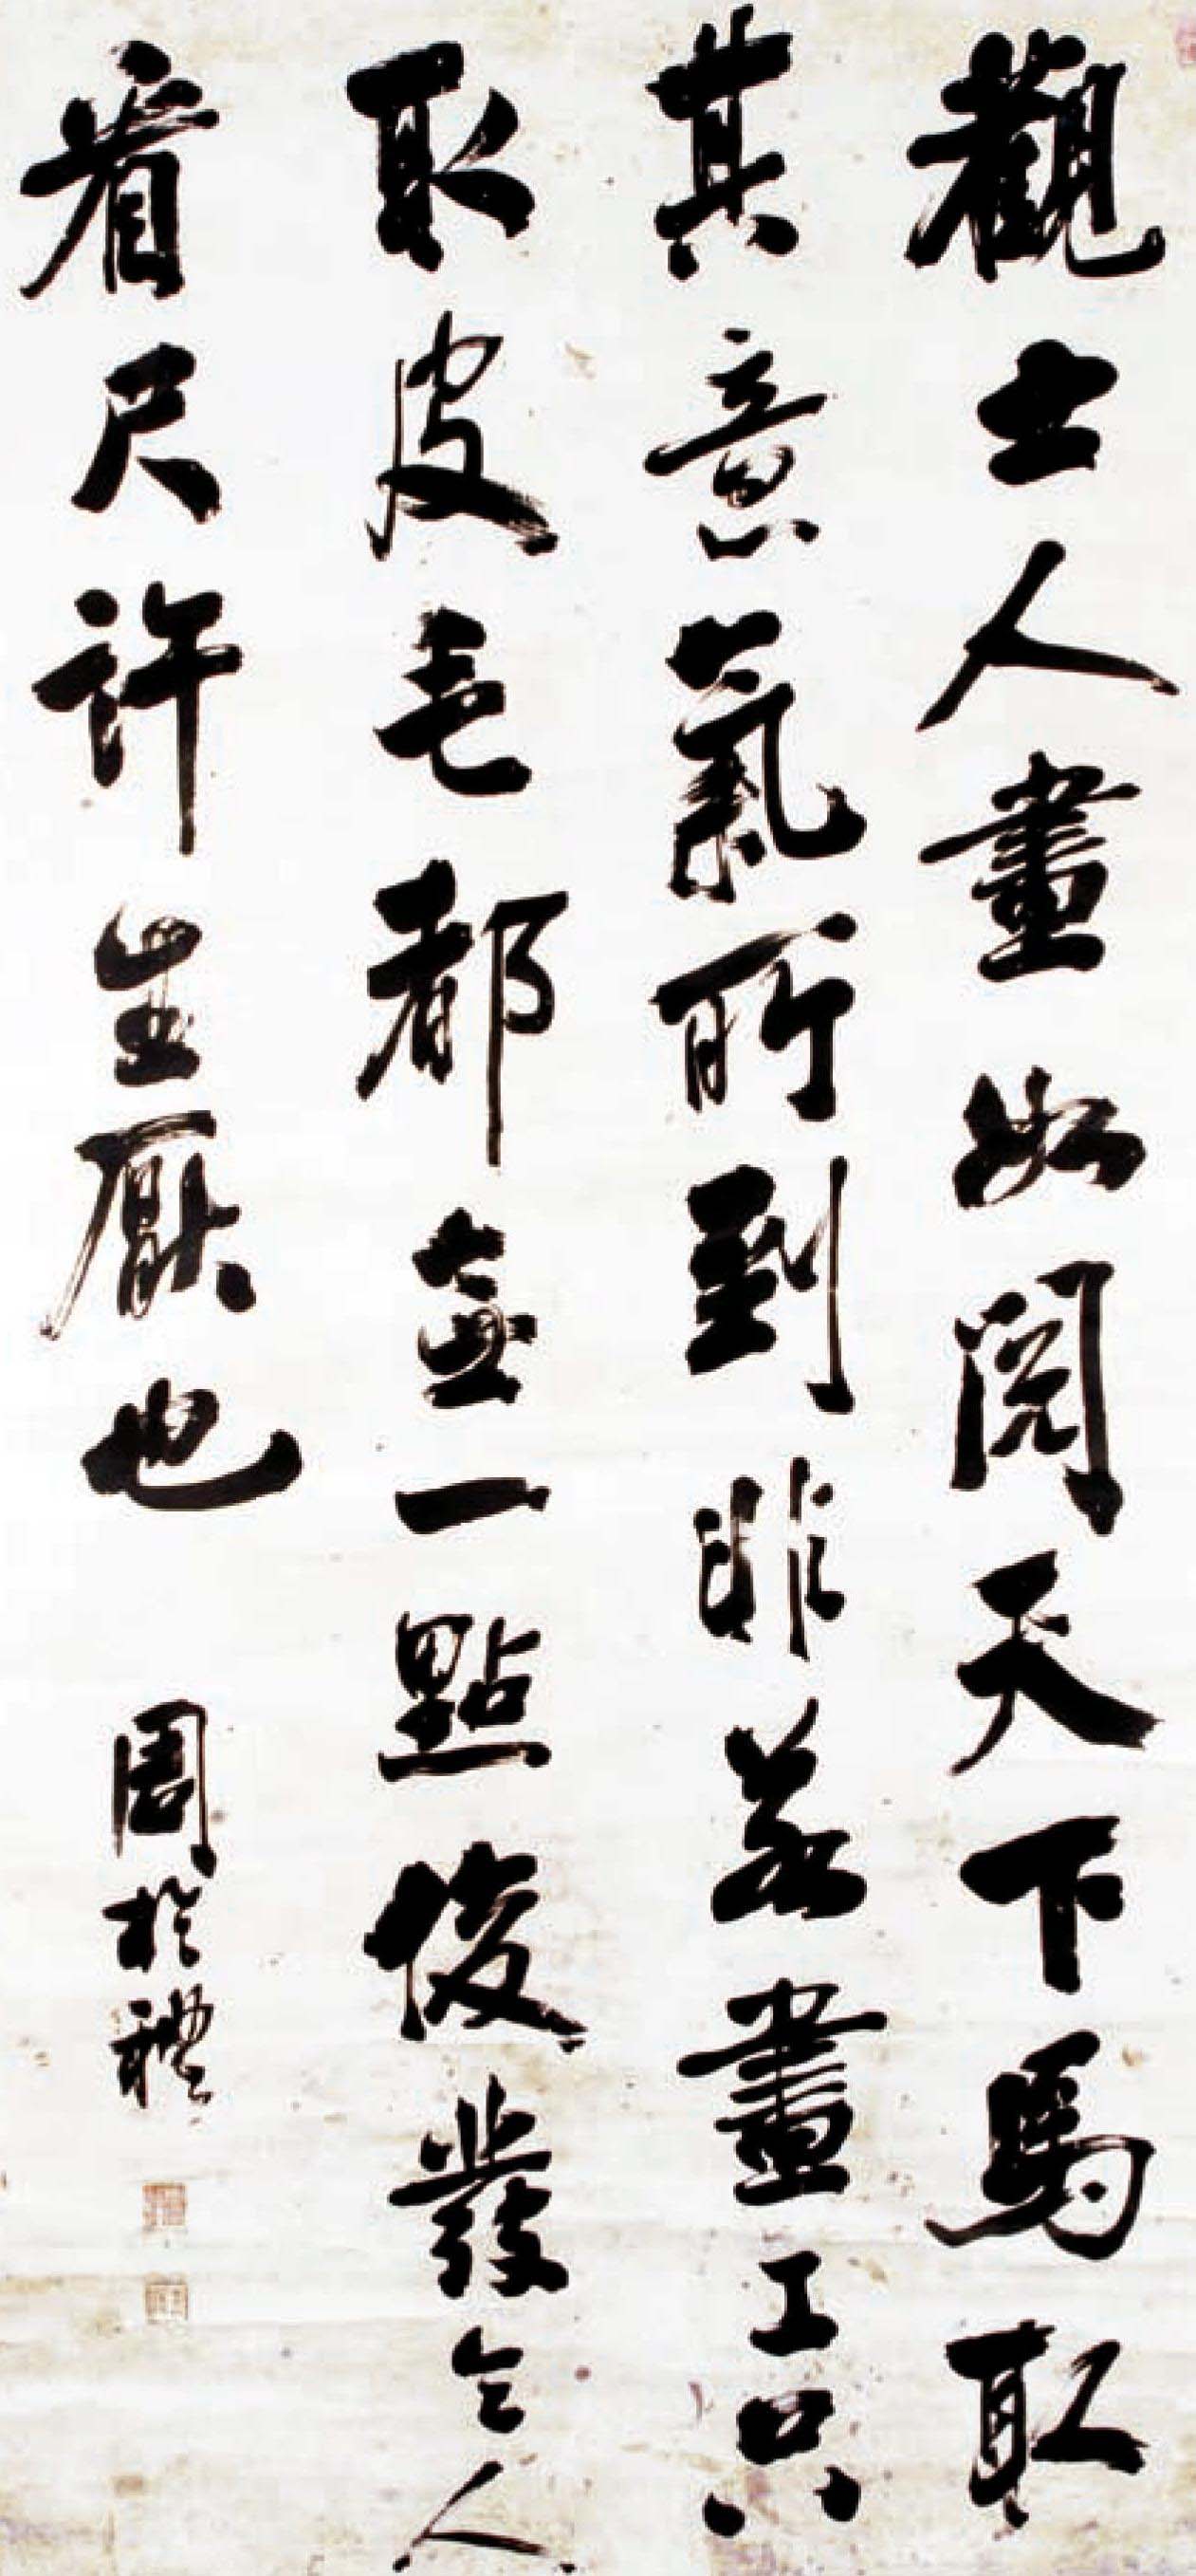 觀士人畫如閱天下馬取
其意氣所到非若畫工只
取皮毛都無一點俊發令人
看尺許生厭也
周於禮